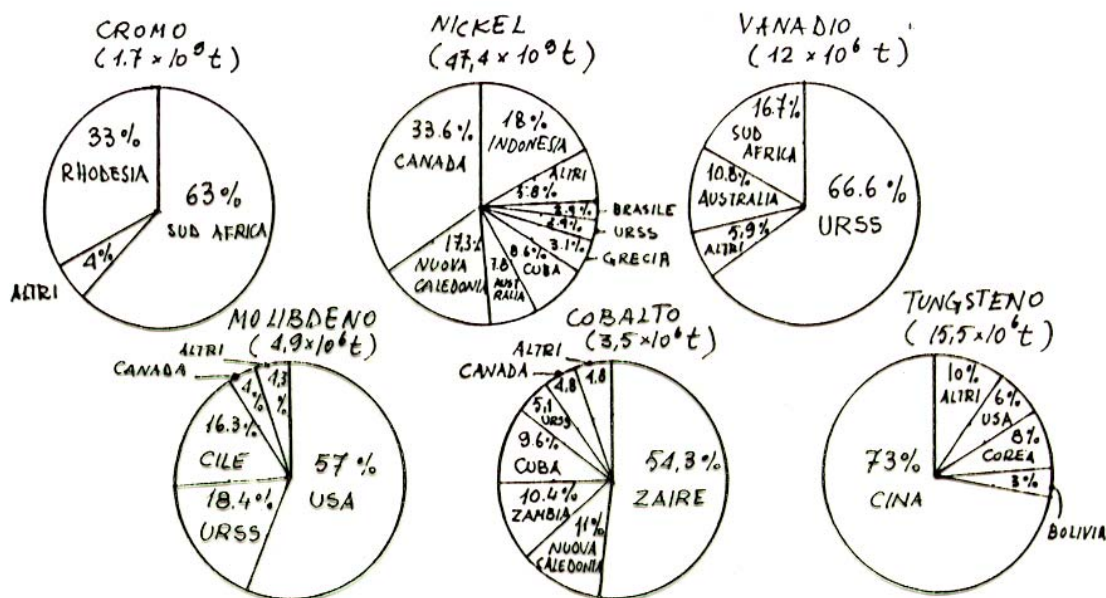 CROMO
(1.7 × 10⁹ t)
33%
RHODESIA
63%
SUD AFRICA
4%
ALTRI
NICKEL
(47,4 × 10⁹ t)
33.6%
CANADA
18%
INDONESIA
ALTRI
5.8%
2.9%
BRASILE
2.9%
URSS
3.1%
GRECIA
8.6%
CUBA
7.8
AUSTRALIA
17,3%
NUOVA
CALEDONIA
VANADIO
(12 × 10⁶ t)
16.7%
SUD
AFRICA
10.8%
AUSTRALIA
5,9%
ALTRI
66.6%
URSS
MOLIBDENO
(4,9 × 10⁶ t)
ALTRI
CANADA
4%
4,3
%
16.3%
CILE
18.4%
URSS
57%
USA
COBALTO
(3,5 × 10⁶ t)
ALTRI
CANADA
4,8
4.8
5,1
URSS
9.6%
CUBA
10.4%
ZAMBIA
11%
NUOVA
CALEDONIA
54,3%
ZAIRE
TUNGSTENO
(15,5 × 10⁶ t)
10%
ALTRI
6%
USA
8%
COREA
3%
BOLIVIA
73%
CINA